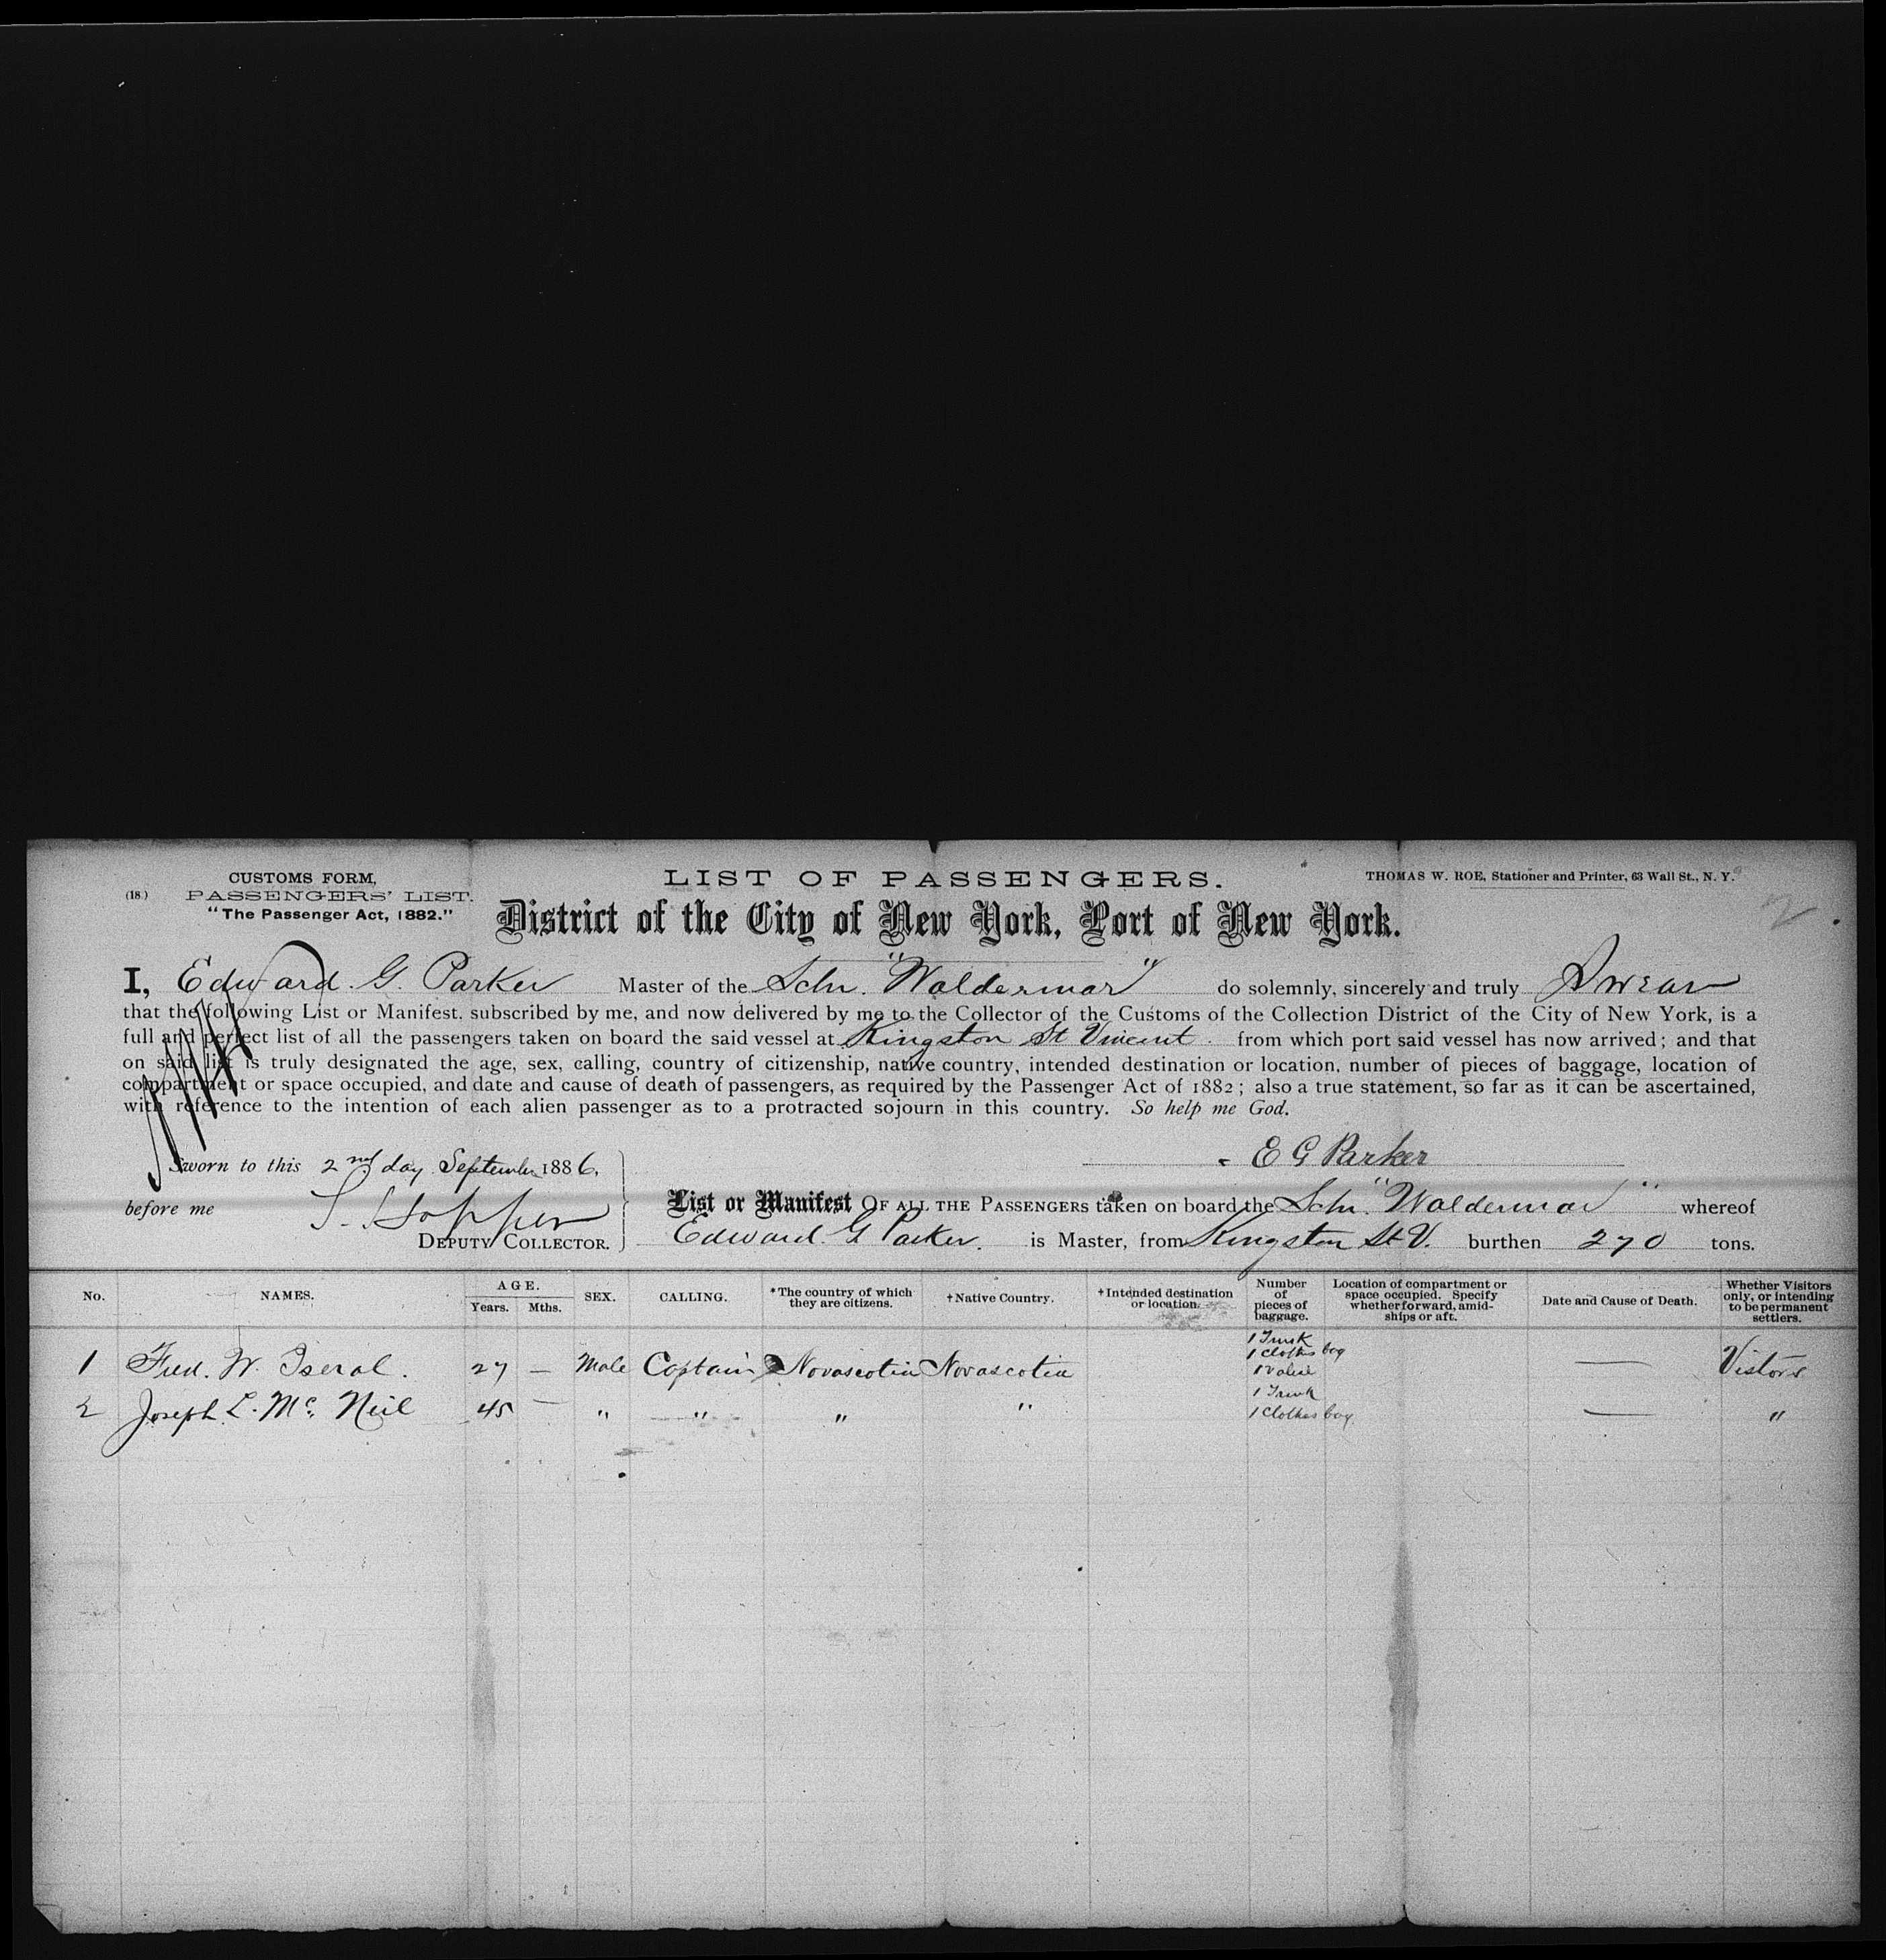 CUSTOMS FORM,
(18.) PASSENGERS' LIST.
"The Passenger Act, 1882."
LIST OF PASSENGERS.
THOMAS W. ROE, Stationer and Printer, 63 Wall St., N. Y.
2
District of the City of New York, Port of New York.
I, Edward. G. Parker Master of the Schr. "Waldermar" do solemnly, sincerely and truly Swear
that the following List or Manifest, subscribed by me, and now delivered by me to the Collector of the Customs of the Collection District of the City of New York, is a
full and perfect list of all the passengers taken on board the said vessel at Kingston St Vincent from which port said vessel has now arrived; and that
on said list is truly designated the age, sex, calling, country of citizenship, native country, intended destination or location, number of pieces of baggage, location of
compartment or space occupied, and date and cause of death of passengers, as required by the Passenger Act of 1882; also a true statement, so far as it can be ascertained,
with reference to the intention of each alien passenger as to a protracted sojourn in this country. So help me God.
E G Parker
Sworn to this 2nd day September 1886,
before me S. Hopper
DEPUTY COLLECTOR.
List or Manifest OF ALL THE PASSENGERS taken on board the Schr. "Waldermar" whereof
Edward. G Parker. is Master, from Kingston St V. burthen 270 tons.
No. NAMES. AGE. Years. Mths. SEX. CALLING. *The country of which they are citizens. †Native Country. †Intended destination or location. Number of pieces of baggage. Location of compartment or space occupied. Specify whether forward, amidships or aft. Date and Cause of Death. Whether Visitors only, or intending to be permanent settlers.
1 Fred. W. Iseral. 27 — Male Captain Novascotia Novascotia 1 Trunk 1 clothes bag 1 Valise — Vistors
2 Joseph L. Mc. Neil 45 — " " " " 1 Trunk 1 Clothes bag — "